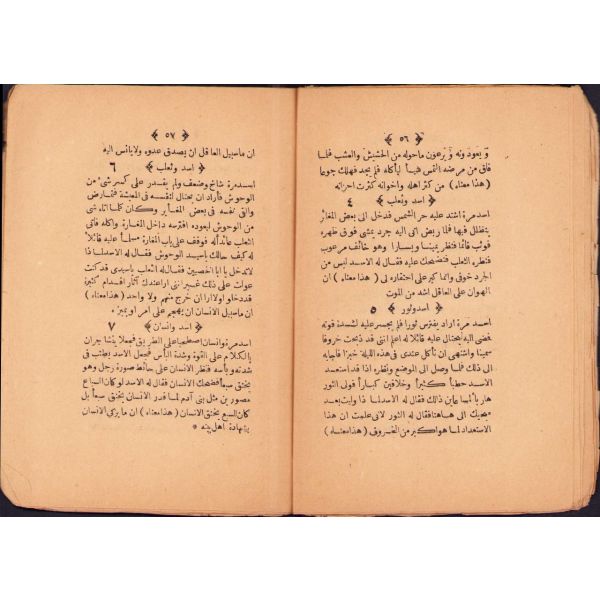 ﴿ ٥٦ ﴾
و يعود ونه و يرعون ماحوله من الحشيش والعشب فلما
فاق من مرضه التمس شيأ ليأكله فلم يجد فهلك جوعا
( هذا معناه ) من كثر اهله واخوانه كثرت احزانه
﴿ اسد وثعلب ﴾ ٤
اسد مرة اشتد عليه حر الشمس فدخل الى بعض المغائر
يتظلل فيها فلما ربض اتى اليه جرد يمشى فوق ظهره
فوثب قائما فنظر يمينا ويسارا وهو خائف مرعوب
فنظره الثعلب فتضحك عليه فقال له الاسد ليس من
الجرد خوفى وانما كبر على احتقاره لى ( هذا معناه ) ان
الهوان على العاقل اشد من الموت
﴿ اسد وثور ﴾ ٥
اسد مرة اراد يفترس ثورا فلم يجسر عليه لشدة قوته
فضى اليه ليحتال عليه قائلا له اعلم اننى قد ذبحت خروفا
سمينا واشتهى ان تأكل عندى فى هذه الليلة خبزا فاجابه
الى ذلك فلما وصل الى الموضع ونظره اذا قد استعد
الاسد حطبا كثيرا وخلاقين كبارا فولى الثور
هاربا لما عاين ذالك فقال له الاسد لماذا وليت بعد
مجيك الى هاهنا فقال له الثور لانى علمت ان هذا
الاستعداد لما هو اكبر من الخروف ( هذا معناه )
﴿ ٥٧ ﴾
ان ماسبيل العاقل ان يصدق عدوه ولا يانس اليه
﴿ اسد وثعلب ﴾ ٦
اسد مرة شاخ وضعف ولم يقدر على كسر شئ من
الوحوش فأراد ان يحتال لنفسه فى المعيشة فتمارض
والقى نفسه فى بعض المغاير وكان كلما اتاه شئ
من الوحوش ليعوده افترسه داخل المغارة واكله فأتى
الثعلب عائدا له فوقف على باب المغارة مسلما عليه قائلا
له كيف حالك ياسيد الوحوش فقال له الاسد لماذا
لا تدخل يا ابا الحصين فقال له الثعلب ياسيدى قد كنت
عولت على ذلك غير اننى ارا عندك آثار اقدام كثيرة
قد دخلو اولا ارا ان خرج منهم ولا واحد ( هذا معناه )
ان ماسبيل الانسان ان يهجم على امر او يميزه
﴿ اسد وانسان ﴾ ٧
اسد مرة وانسان اصطحبا على الطريق فجعلا يتشاجران
بالكلام على القوة وشدة البأس فجعل الاسد يطنب فى
شدته وبأسه فنظر الانسان على حائط صورة رجل وهو
يخنق سبعا فضحك الانسان فقال له الاسد لو كان السباع
مصورين مثل بنى آدم لما قدر الانسان يخنق سبعا بل
كان السبع يخنق الانسان ( هذا معناه ) ان ما يزكى الانسان
بشهادة اهل بيته *